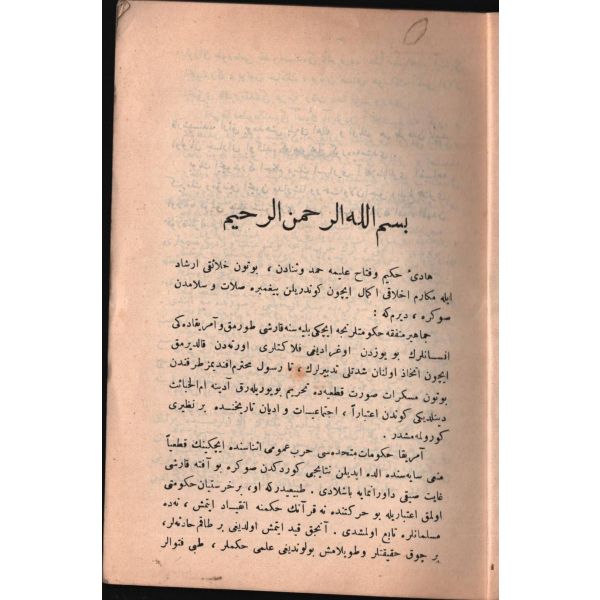 بسم الله الرحمن الرحيم
هادئ حكيم وفتاح عليمه حمد وثنادن ، بوتون خلائقى ارشاد
ايله مكارم اخلاقى اكمال ايچون كوندريلن پيغمبره صلات و سلامدن
صوكره ، ديرم كه :
جماهير متفقه حكومتلرنجه ايچكى بليه سنه قارشى طورمق و آمريقاده كى
انسانلرك بو يوزدن اوغراديغى فلاكتلرى اورته دن قالديرمق
ايچون اتخاذ اولنان شدتلى تدبيرلرك ، تا رسول محترم افنديمز طرفندن
بوتون مسكرات صورت قطعيه ده تحريم بويوريله رق آدينه ام الخبائث
دينلديكى كوندن اعتباراً ، اجتماعيات و اديان تاريخنده بر نظيرى
كورولمه مشدر .
آمريقا حكومات متحده سى حرب عمومى اثناسنده ايچكينك قطعياً
منعى سايه سنده الده ايديلن نتايجى كوردكدن صوكره بو آفته قارشى
غايت صيقى داورانمايه باشلادى . طبيعيدركه او ، بر خرستيان حكومتى
اولمق اعتباريله بو حركتنده نه قرآنك حكمنه انقياد ايتمش ، نه ده
مسلمانلره تابع اولمشدى . آنجق قيد ايتمش اولديغى بر طاقم حادثه لر،
بر چوق حقيقتلر و طوپلامش بولونديغى علمى حكملر ، طبى فتوالر